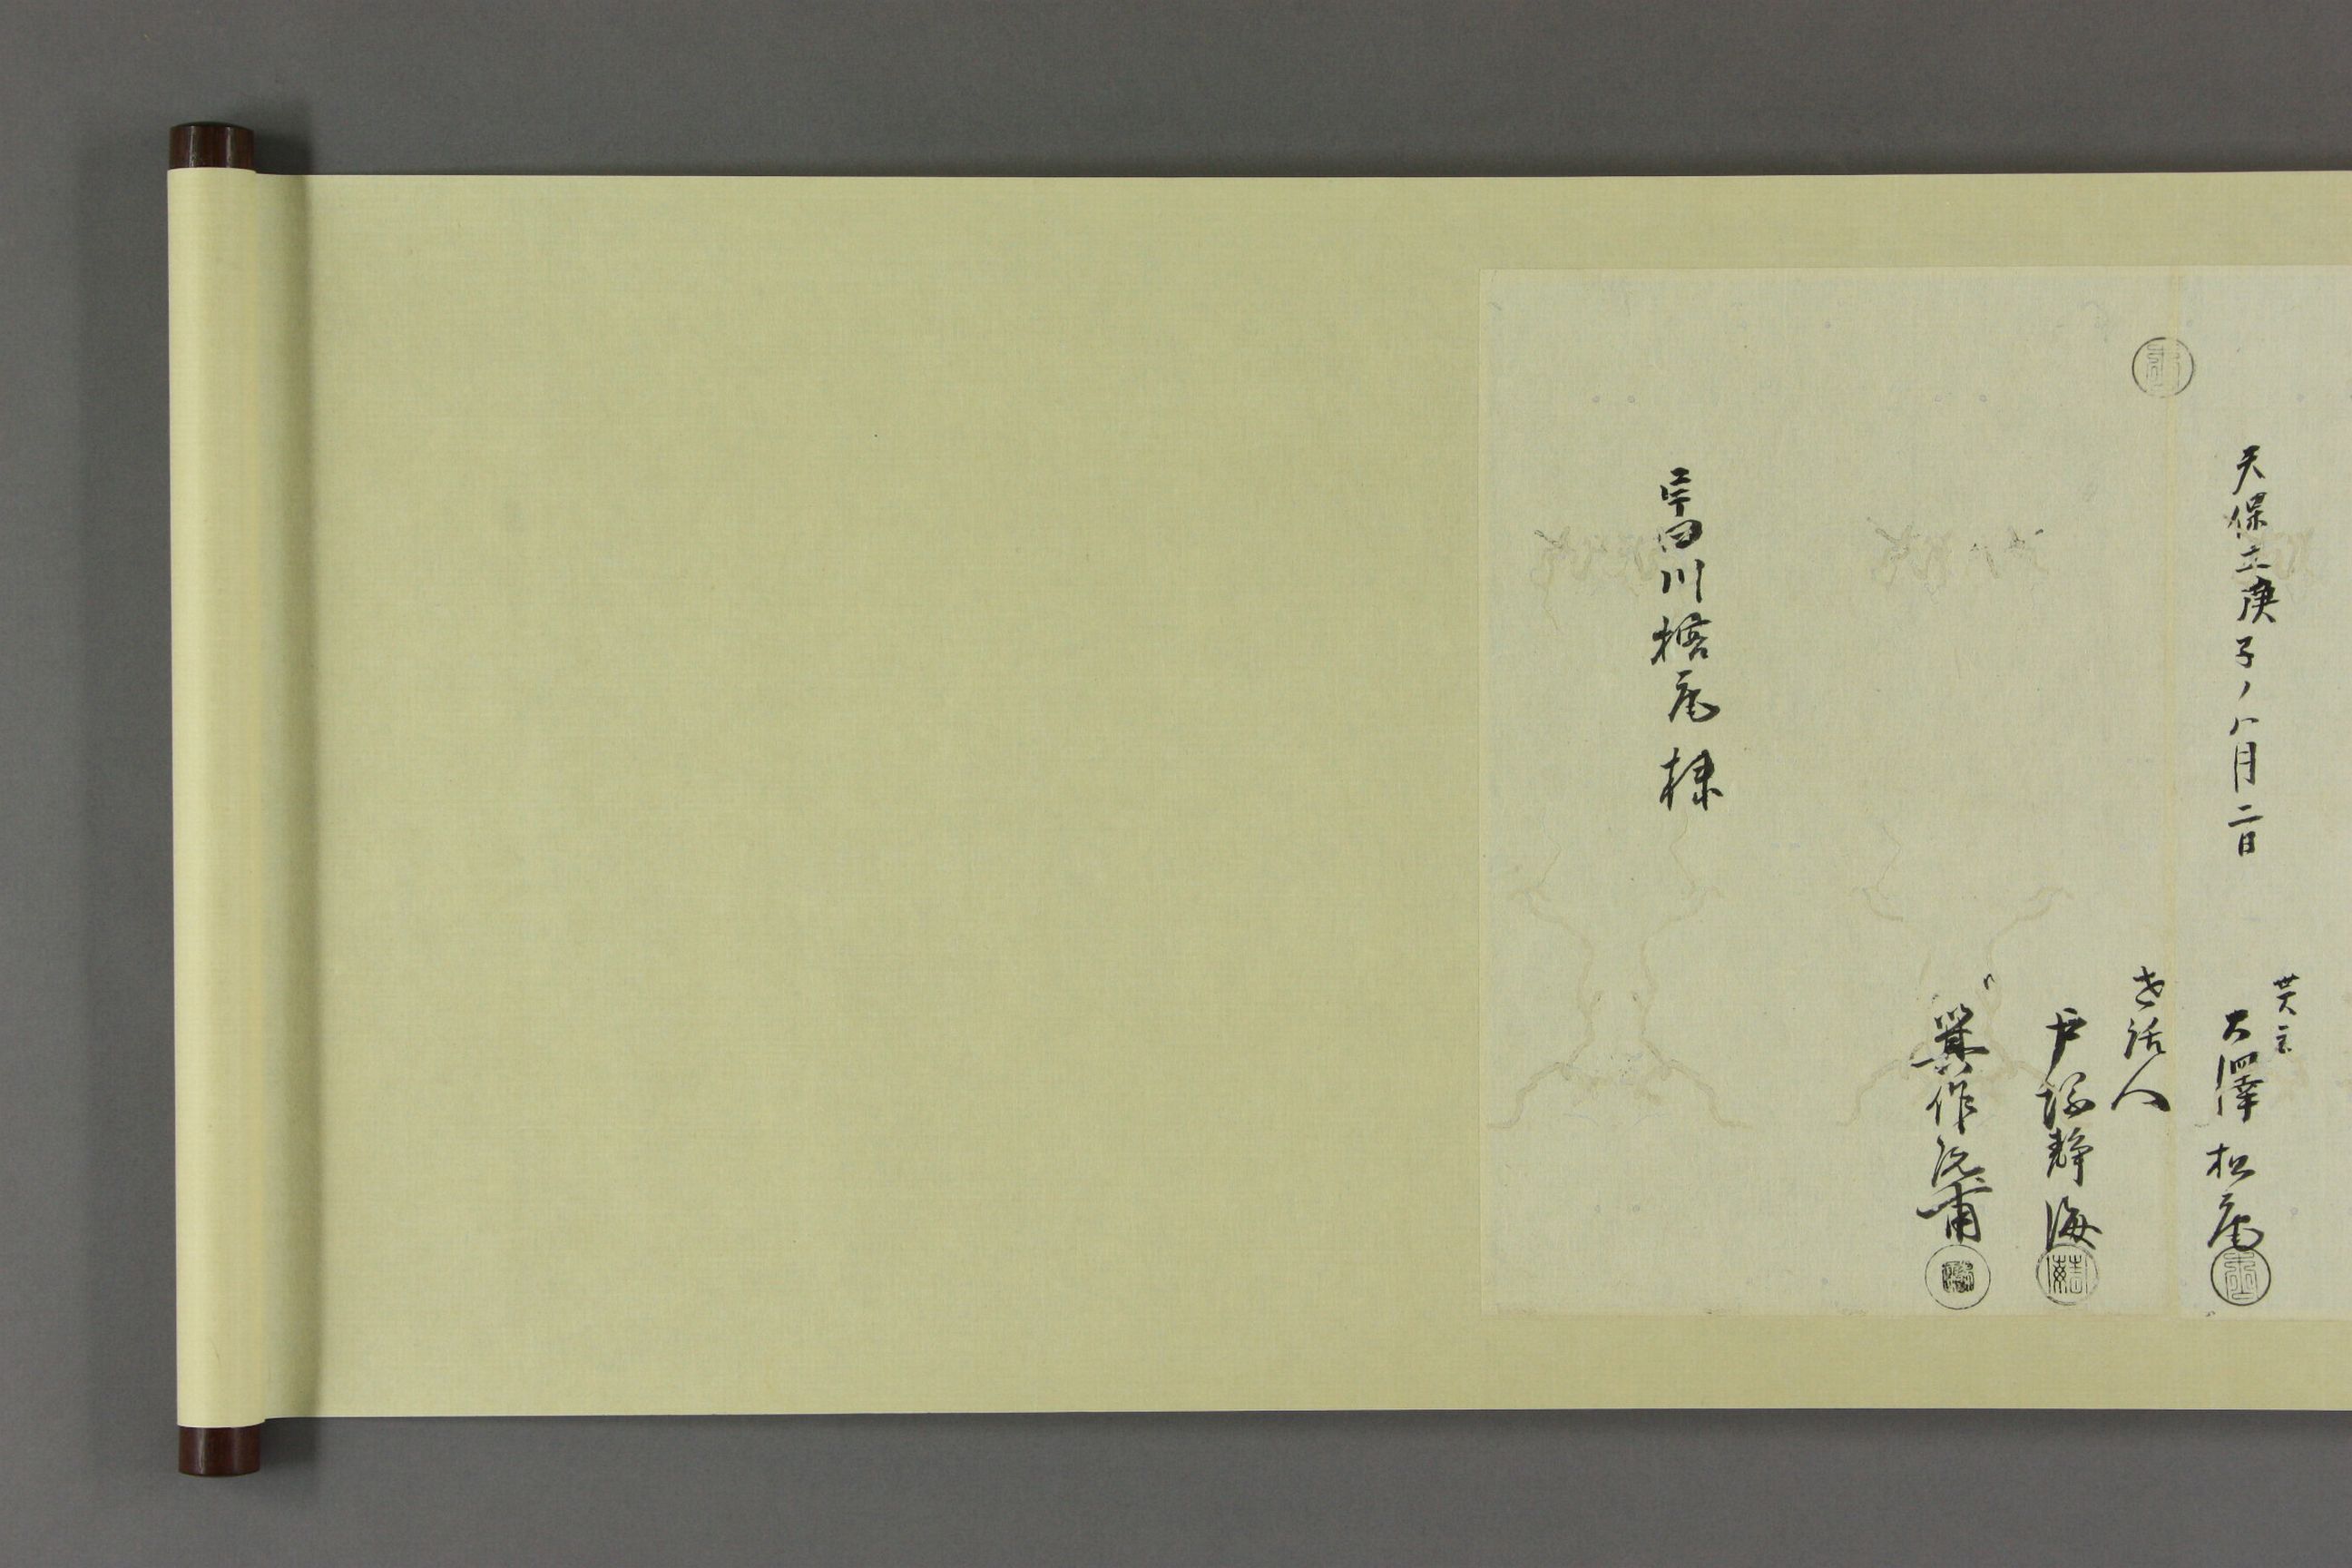 天保十一庚子ノ八月二日
貰主
大澤松庵
世話人
戸塚静海
箕作阮甫
宇田川榕庵様